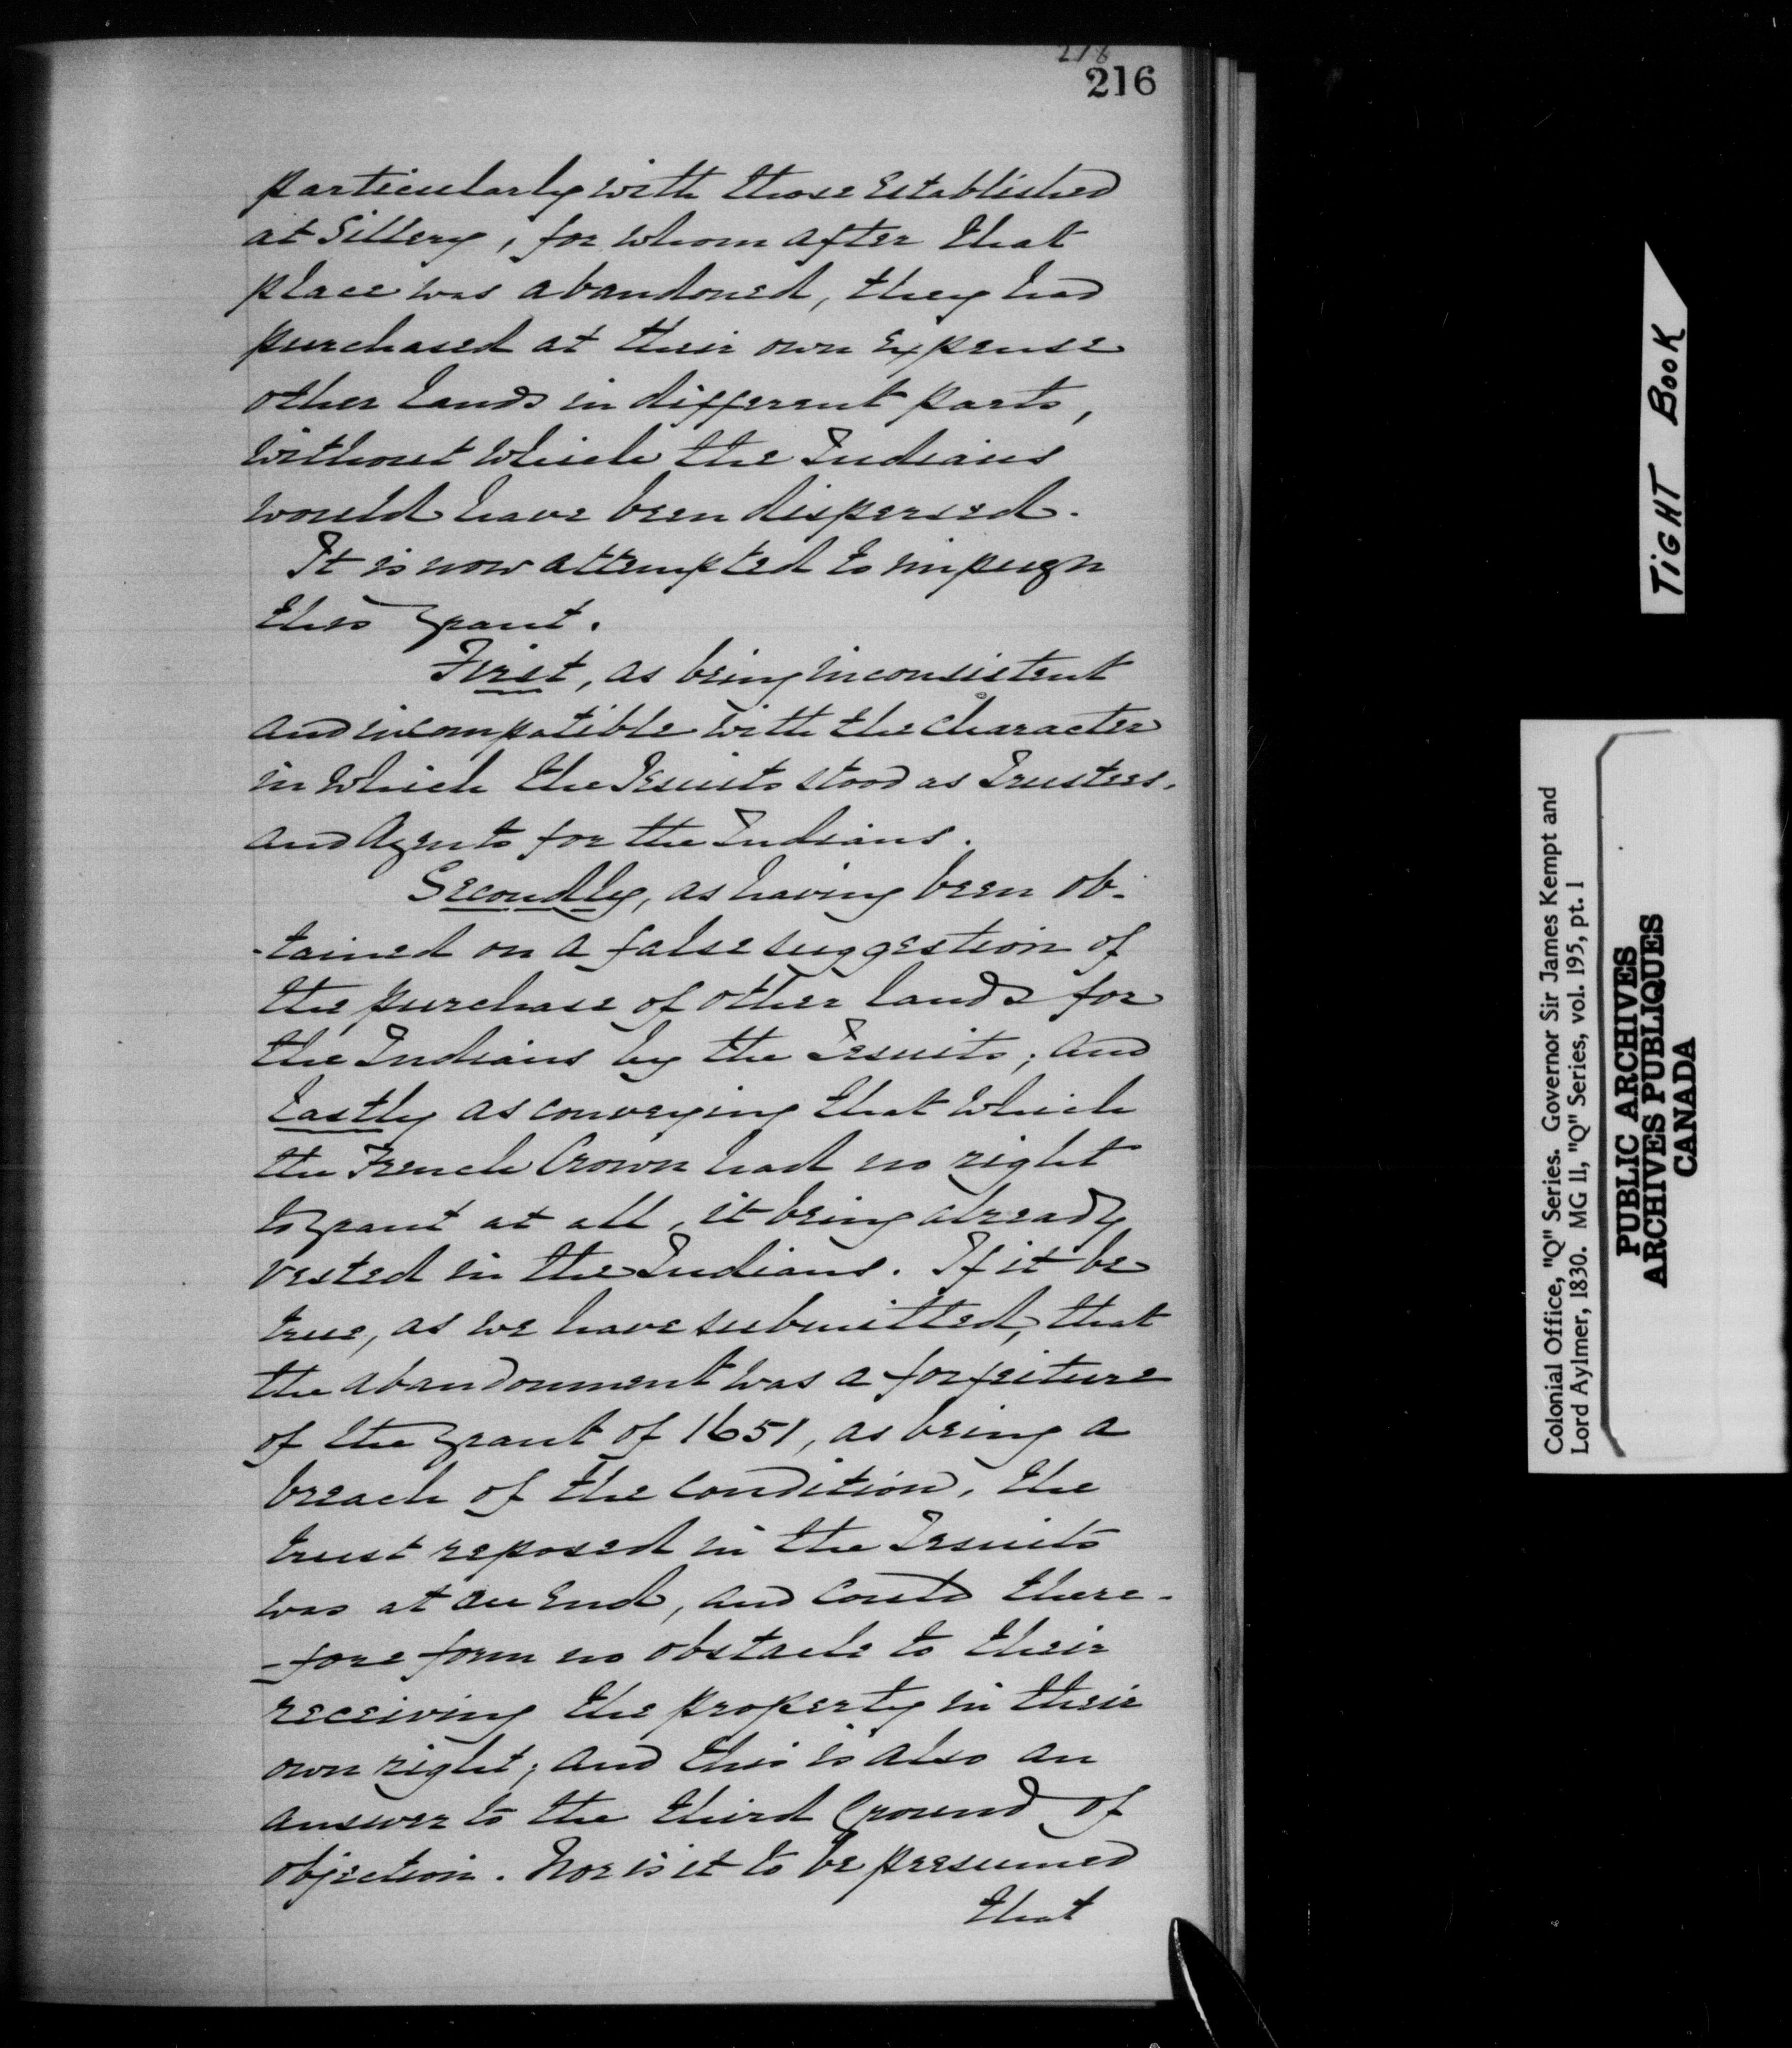 216
216
particularly with those Established
at Sillery, for whom after that
place was abandoned, they had
purchased at their own Expense
other lands in different parts,
without which the Indians
would have been dispersed.
It is now attempted to impugn
this grant.
First, as being inconsistent
and incompatible with the character
in which the Jesuits stood as Trustees,
and Agents for the Indians.
Secondly, as having been ob-
-tained on a false suggestion of
the purchase of other lands for
the Indians by the Jesuits; and
lastly as conveying that which
the French Crown had no right
to grant at all, it being already
vested in the Indians. If it be
true, as we have submitted, that
the abandonment was a forfeiture
of the grant of 1651, as being a
breach of the Condition, the
trust reposed in the Jesuits
was at an End, and could there-
-fore form no obstacle to their
receiving the property in their
own right; and this is also an
answer to the third Ground of
objection. Nor is it to be presumed
that
TIGHT BOOK
Colonial Office, "Q" Series. Governor Sir James Kempt and
Lord Aylmer, 1830. MG 11, "Q" Series, vol. 195, pt. 1
PUBLIC ARCHIVES
ARCHIVES PUBLIQUES
CANADA